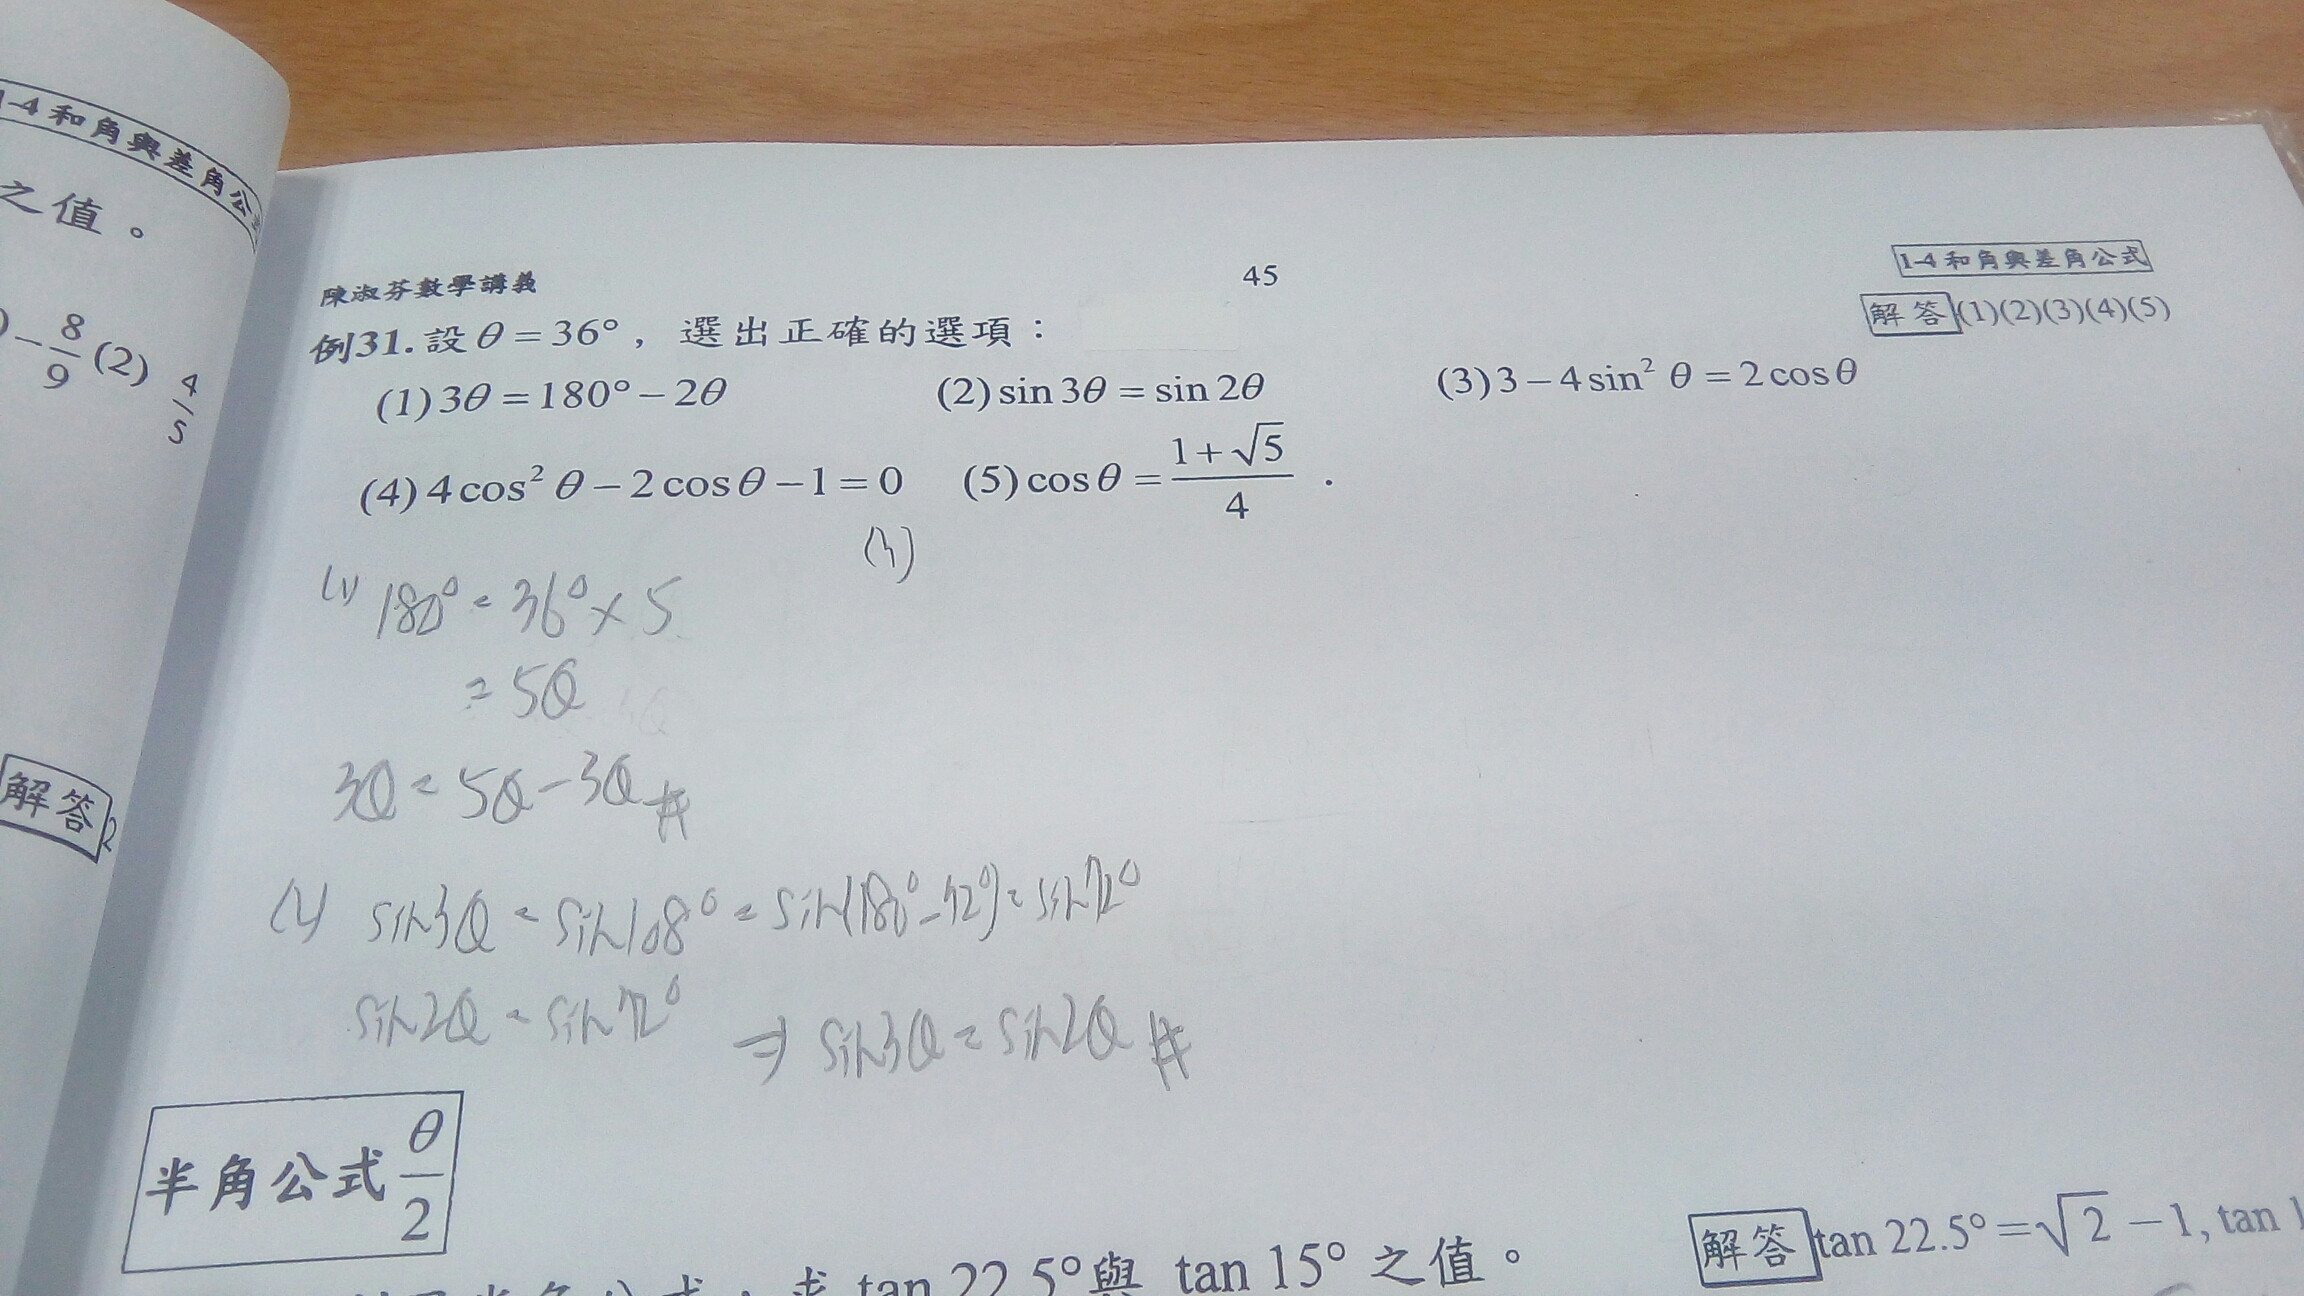 1-4和角與差角公
之值。
-8/9 (2) 4/5
解答 2
陳淑芬數學講義
45
1-4和角與差角公式
解答 (1)(2)(3)(4)(5)
例31.設θ=36°，選出正確的選項：
(1) 3θ=180°-2θ (2) sin 3θ = sin 2θ (3) 3-4sin² θ = 2cosθ
(4) 4cos² θ-2cosθ-1=0 (5) cosθ = (1+√5)/4 .
(1) 180° = 36° × 5
= 5θ
3θ = 5θ-3θ #
(2) sin3θ = sin108° = sin(180°-72°) = sin72°
sin2θ = sin72° ⇒ sin3θ = sin2θ #
半角公式 θ/2
解答 tan 22.5° = √2 -1, tan 1
求 tan 22.5° 與 tan 15° 之值。